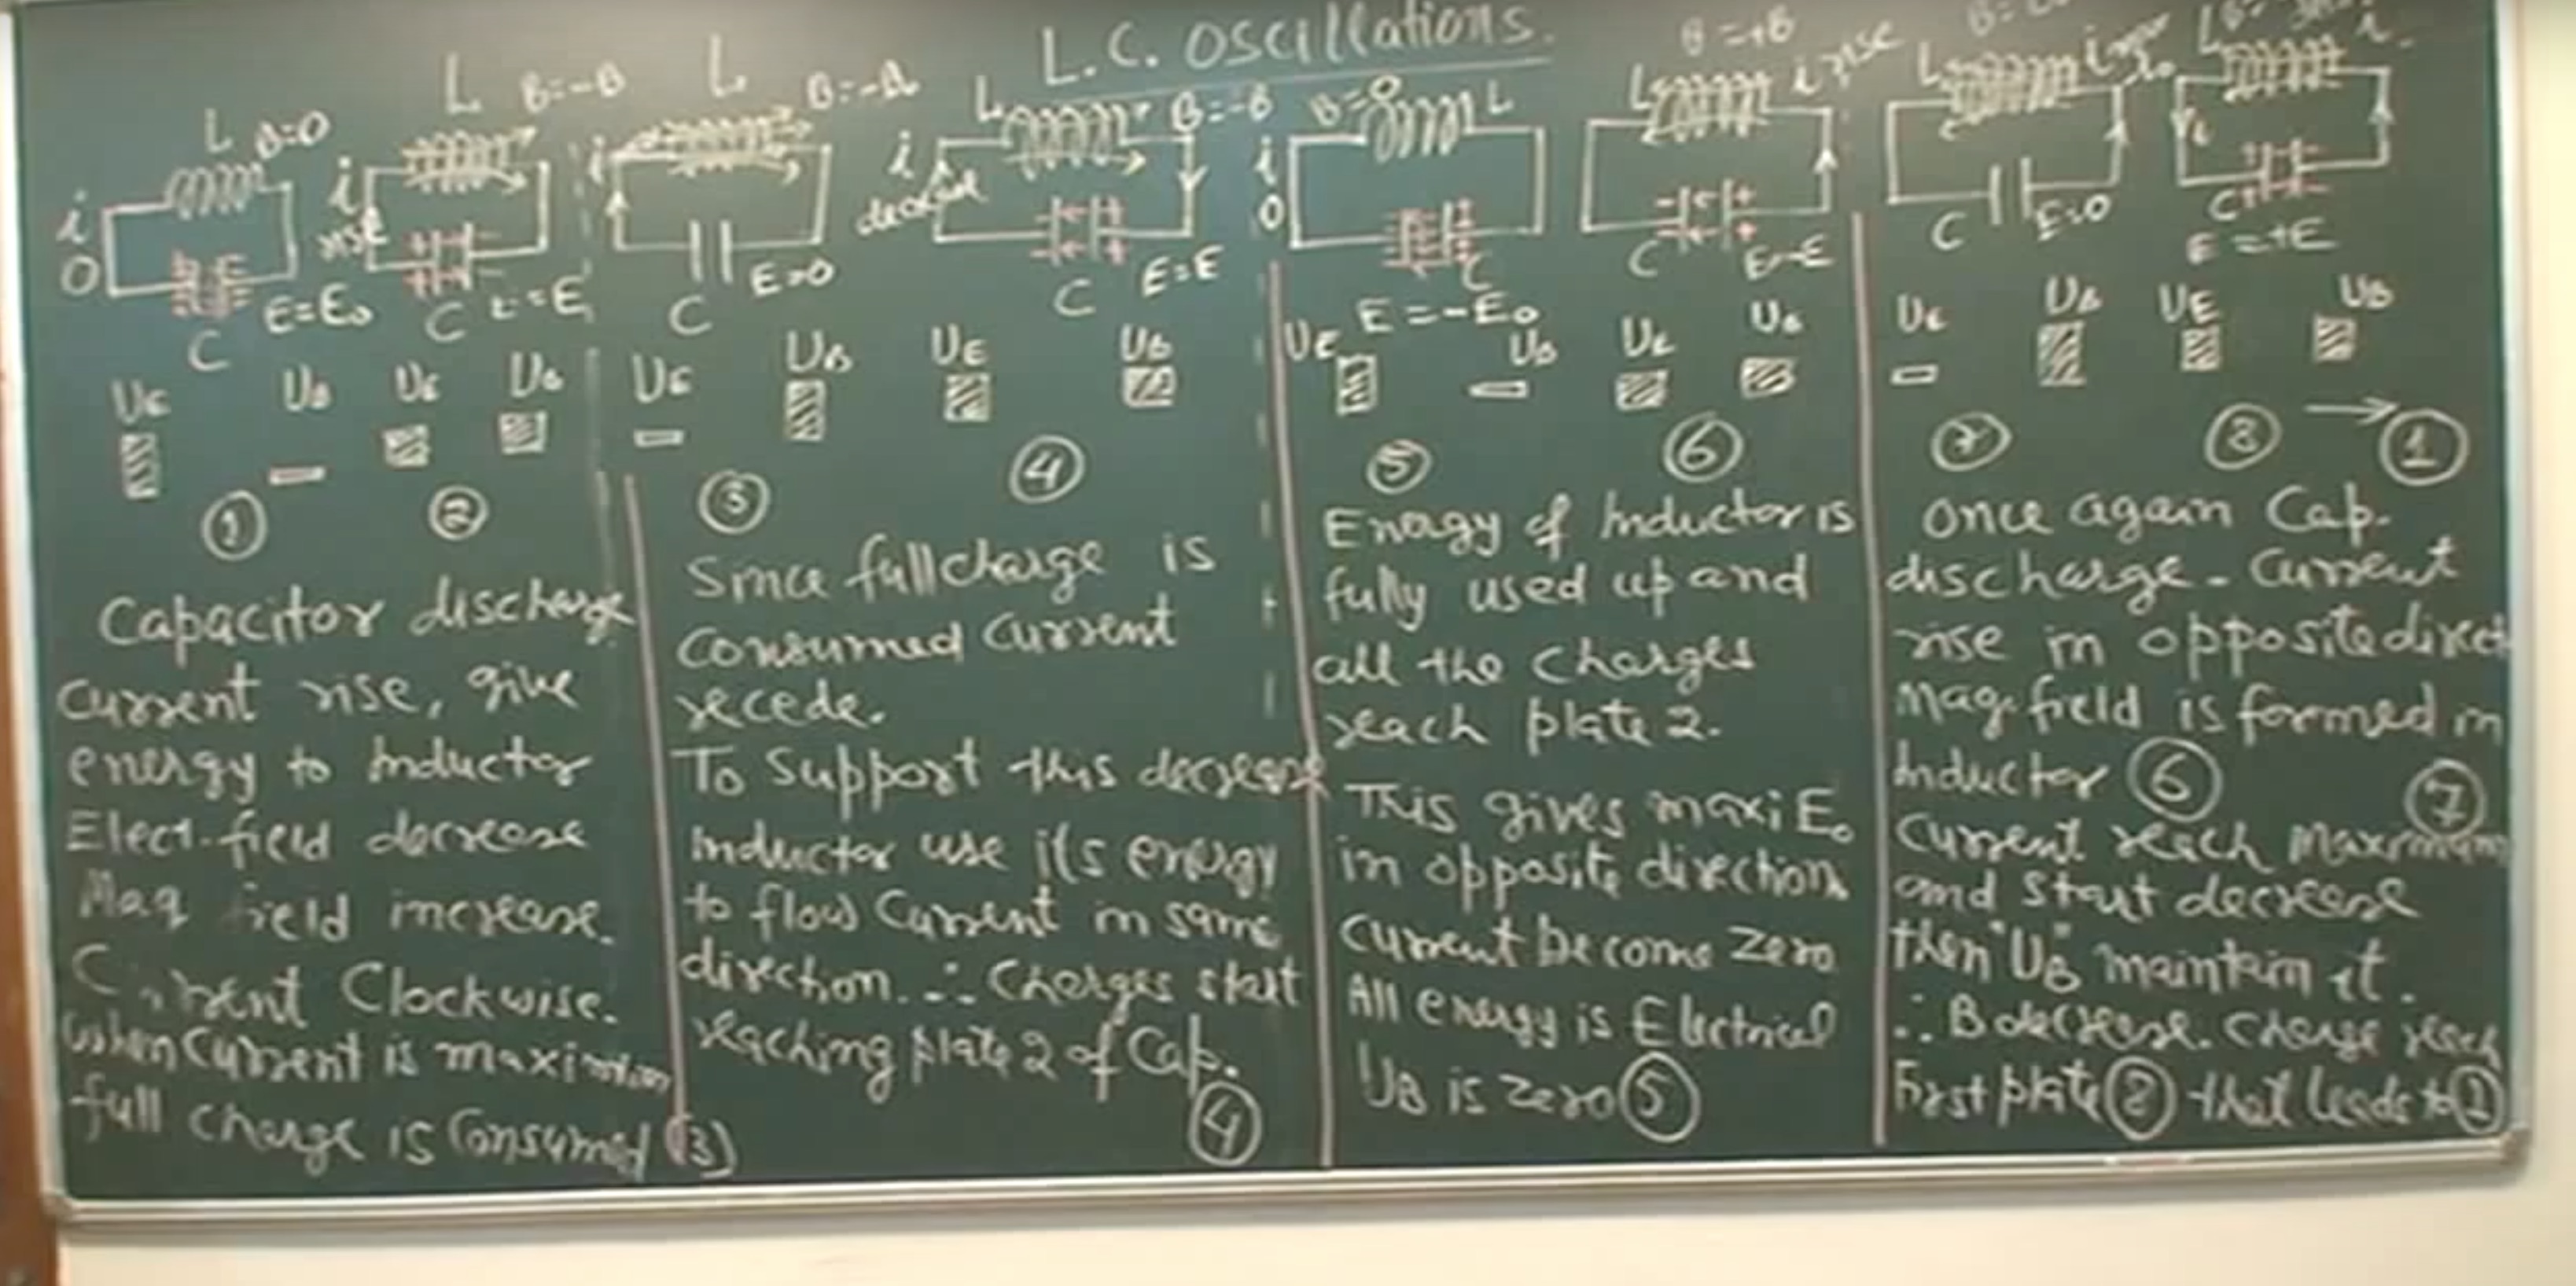 L.C. Oscillations.
L B=0
i
0
C E=E₀
L B=-B
i
rise
C
L
i
C E=0
L B=-B
i
decrease
C E=E
B=0 L
i
0
C
E=-E₀
B=+B
L i rise
C E=-E
L
C E=0
L i
i
C
E=+E
U_E U_B
U_E U_B
U_E U_B
U_E U_B
U_E U_B
U_E U_B
U_E U_B
U_E U_B
① ② ③ ④ ⑤ ⑥ ⑦ ⑧ → ①
Capacitor discharge
Current rise, give
energy to Inductor
Elect. field decrease
Mag field increase.
Current Clockwise.
When Current is maximum
full charge is Consumed (3)
Since full charge is
Consumed Current
recede.
To Support this decrease
Inductor use its energy
to flow Current in same
direction. ∴ Charges start
reaching plate 2 of Cap.
④
Energy of Inductor is
fully used up and
all the Charges
reach plate 2.
This gives maxi E₀
in opposite direction
Current become Zero
All energy is Electrical
U_B is zero ⑤
Once again Cap.
discharge - Current
rise in opposite direct
Mag. field is formed in
Inductor ⑥ ⑦
Current reach Maximum
and Start decrease
then "U_B" maintain it.
∴ B decrease. Charge reach
First plate ⑧ that leads to ①